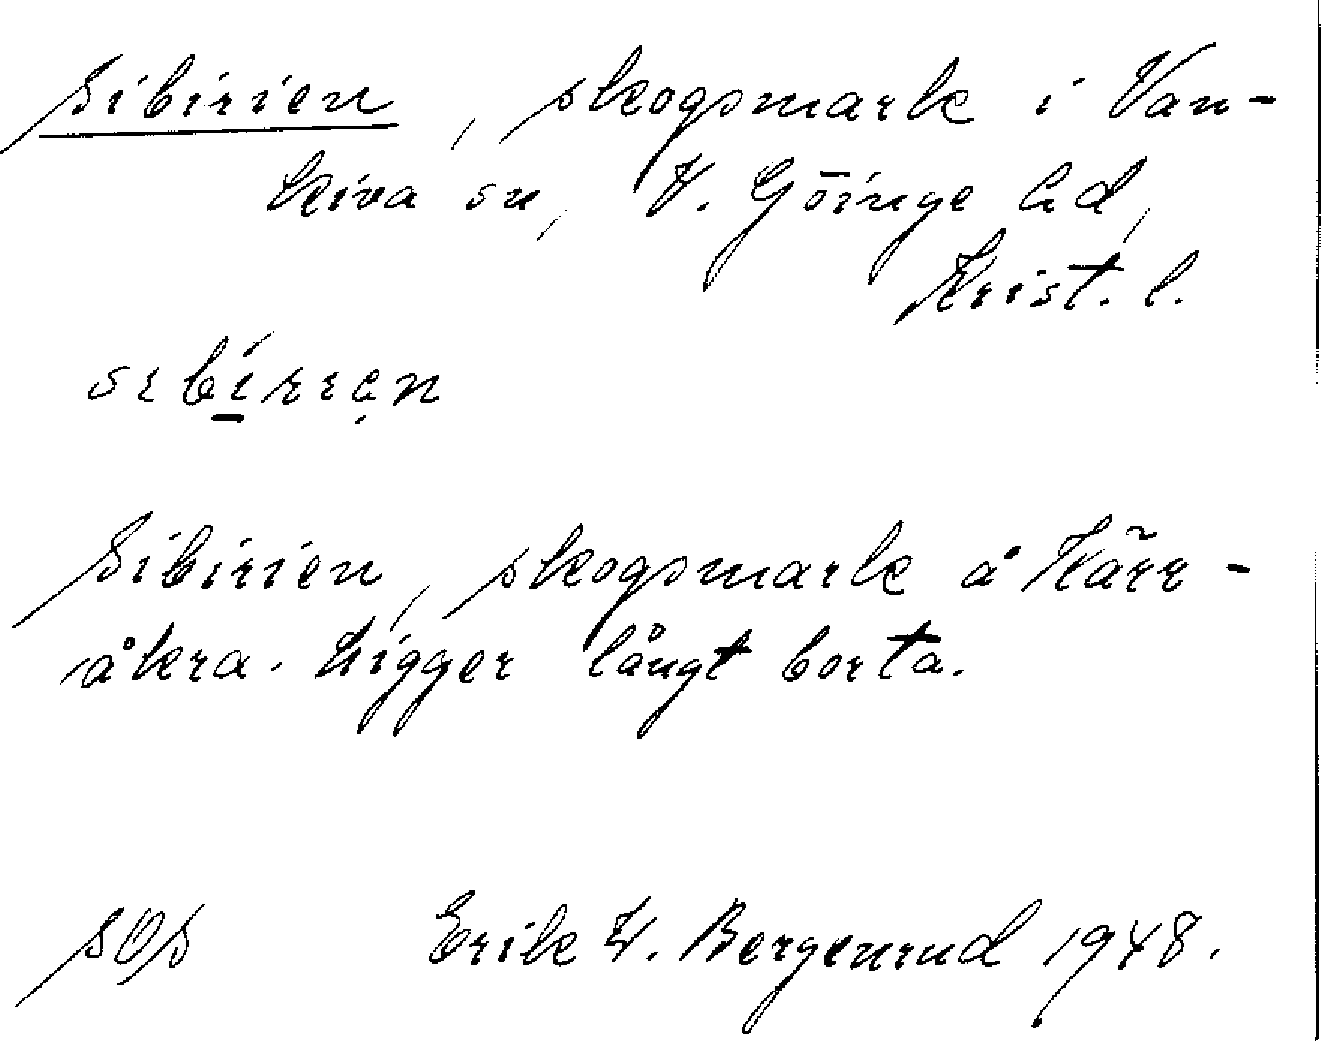 Sibirien, skogsmark i Van-
kiva sn, V. Göinge hd,
Krist. l.
sıbí̱rıen
Sibirien, skogsmark å Kärr-
åkra. Ligger långt borta.
SOS Erik W. Bergenrud 1948.